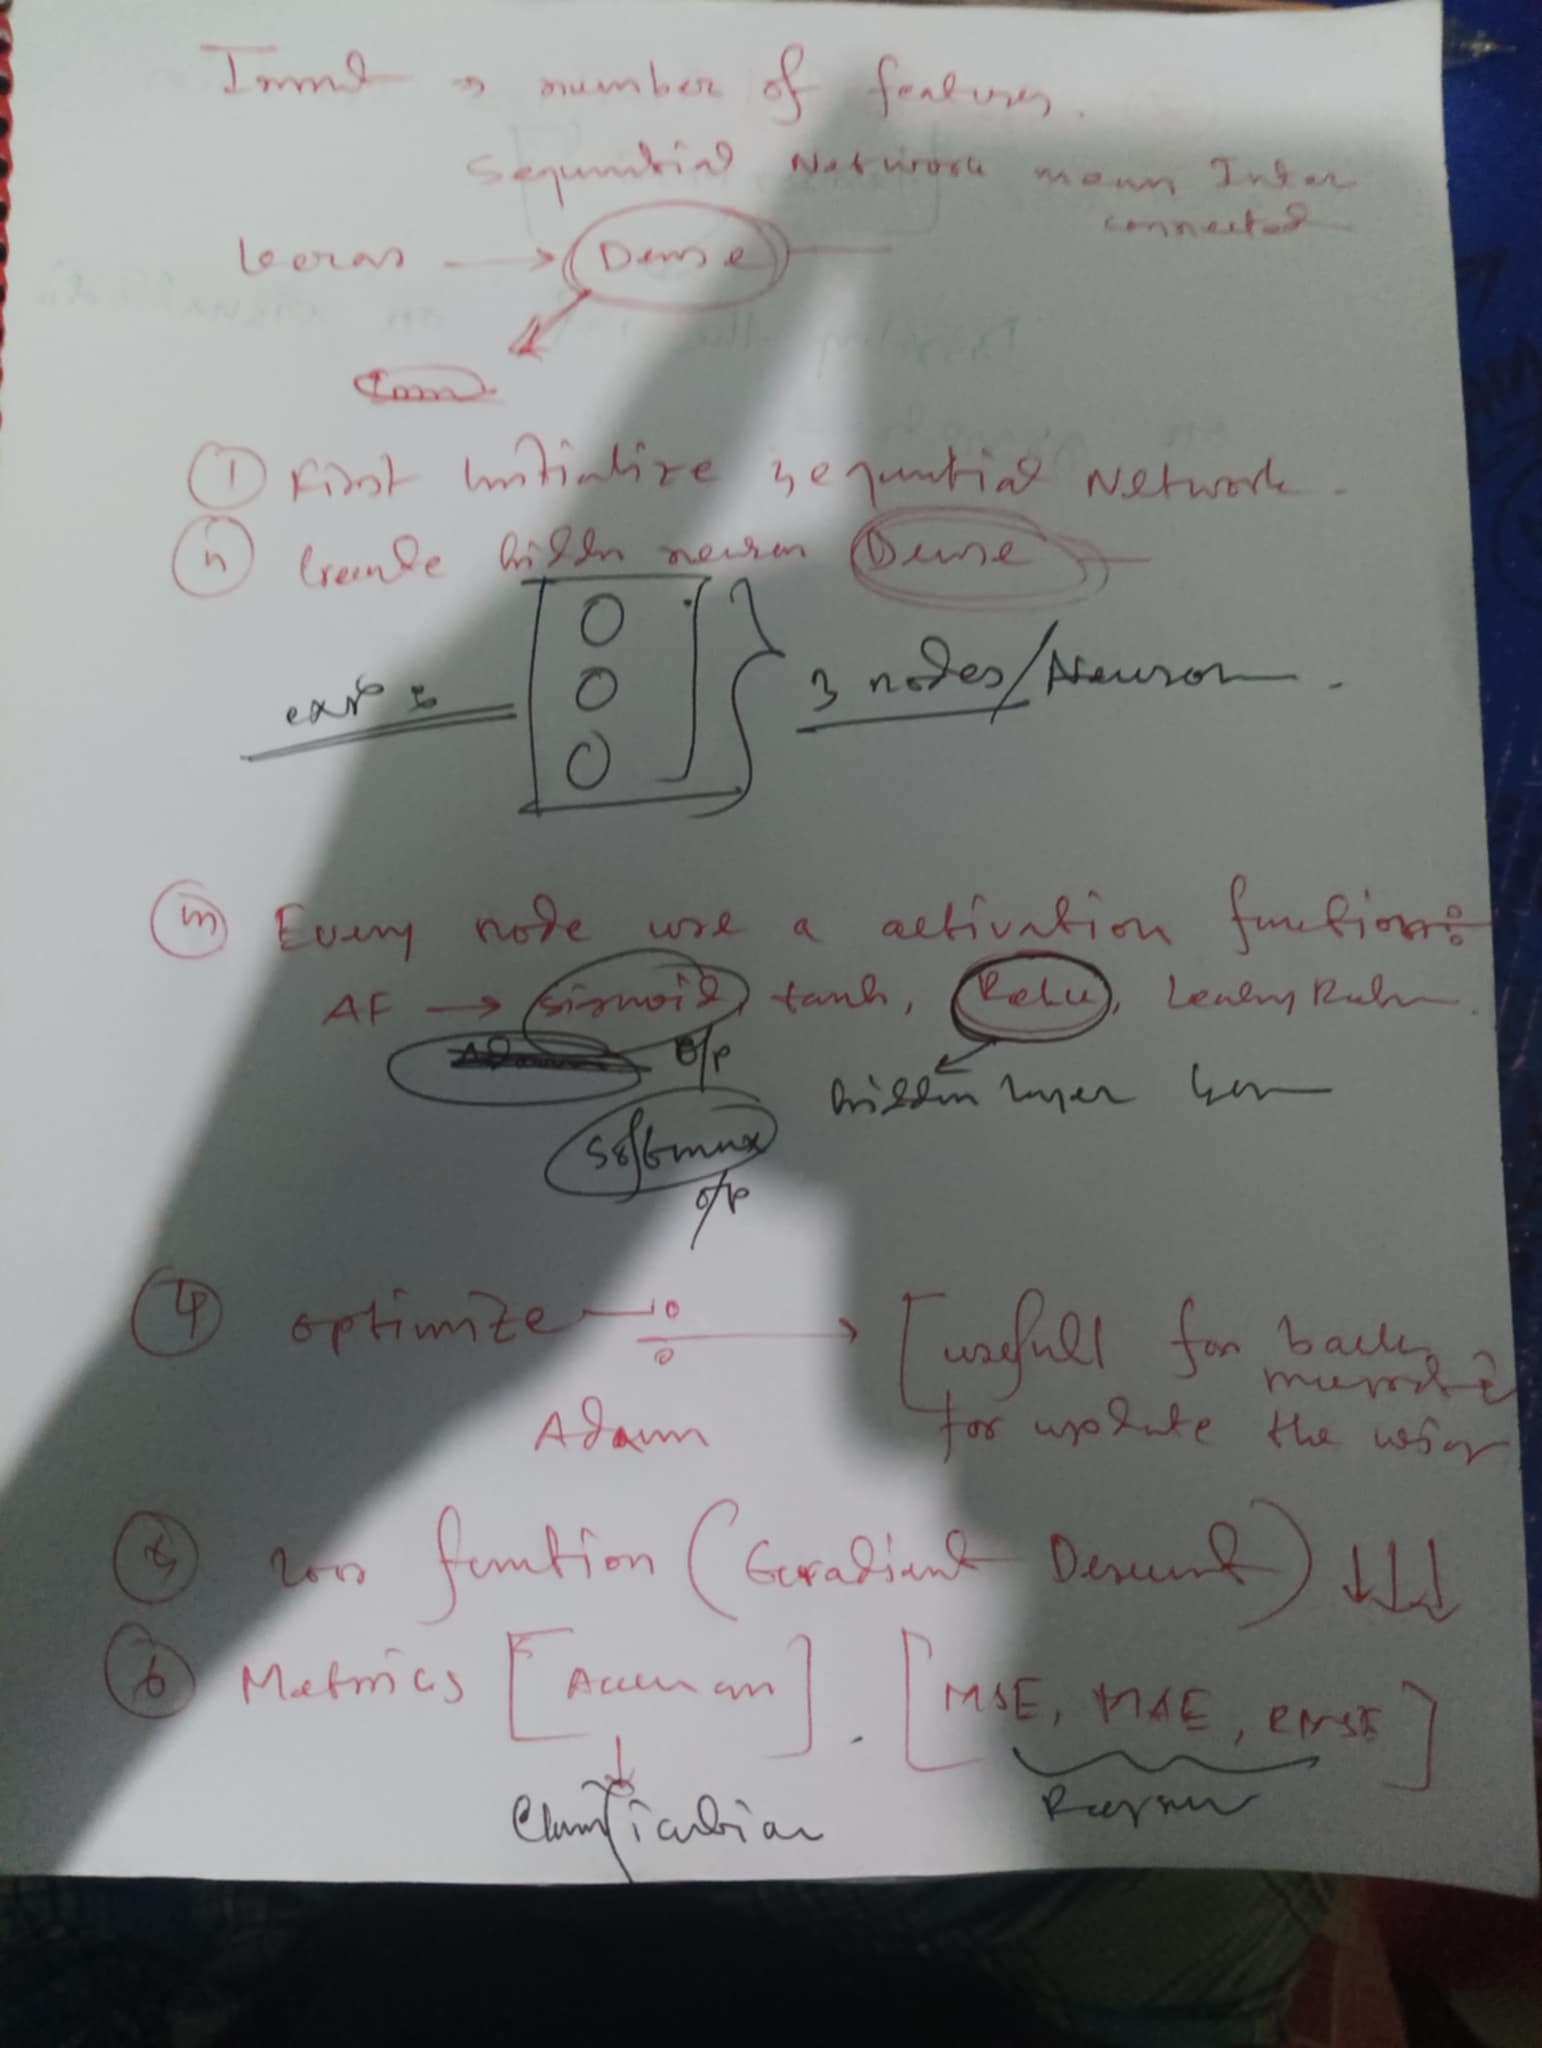 number of features.
Sequential Network mean Inter
connected
keras → Dense
① First initialize sequential Network.
ⓘⓘ Create hidden neuron Dense
3 nodes/Neuron.
ⓘⓘⓘ Every node use a activation function:
AF → sigmoid, tanh, Relu, Leaky Relu
O/P
hidden layer
Softmax
o/p
④ optimize → [usefull for back
Adam for update the
⑤ loss function (Gradient Descent) ↓↓↓
⑥ Metrics [Accuracy]. [MSE, MAE, RMSE]
↓
Classification